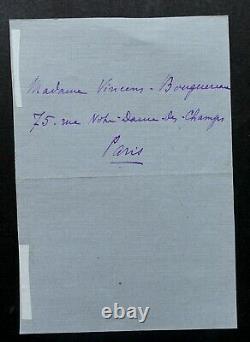 Madame Vincens-Bouguereau
75 rue Notre-Dame-des-Champs
Paris
ebay